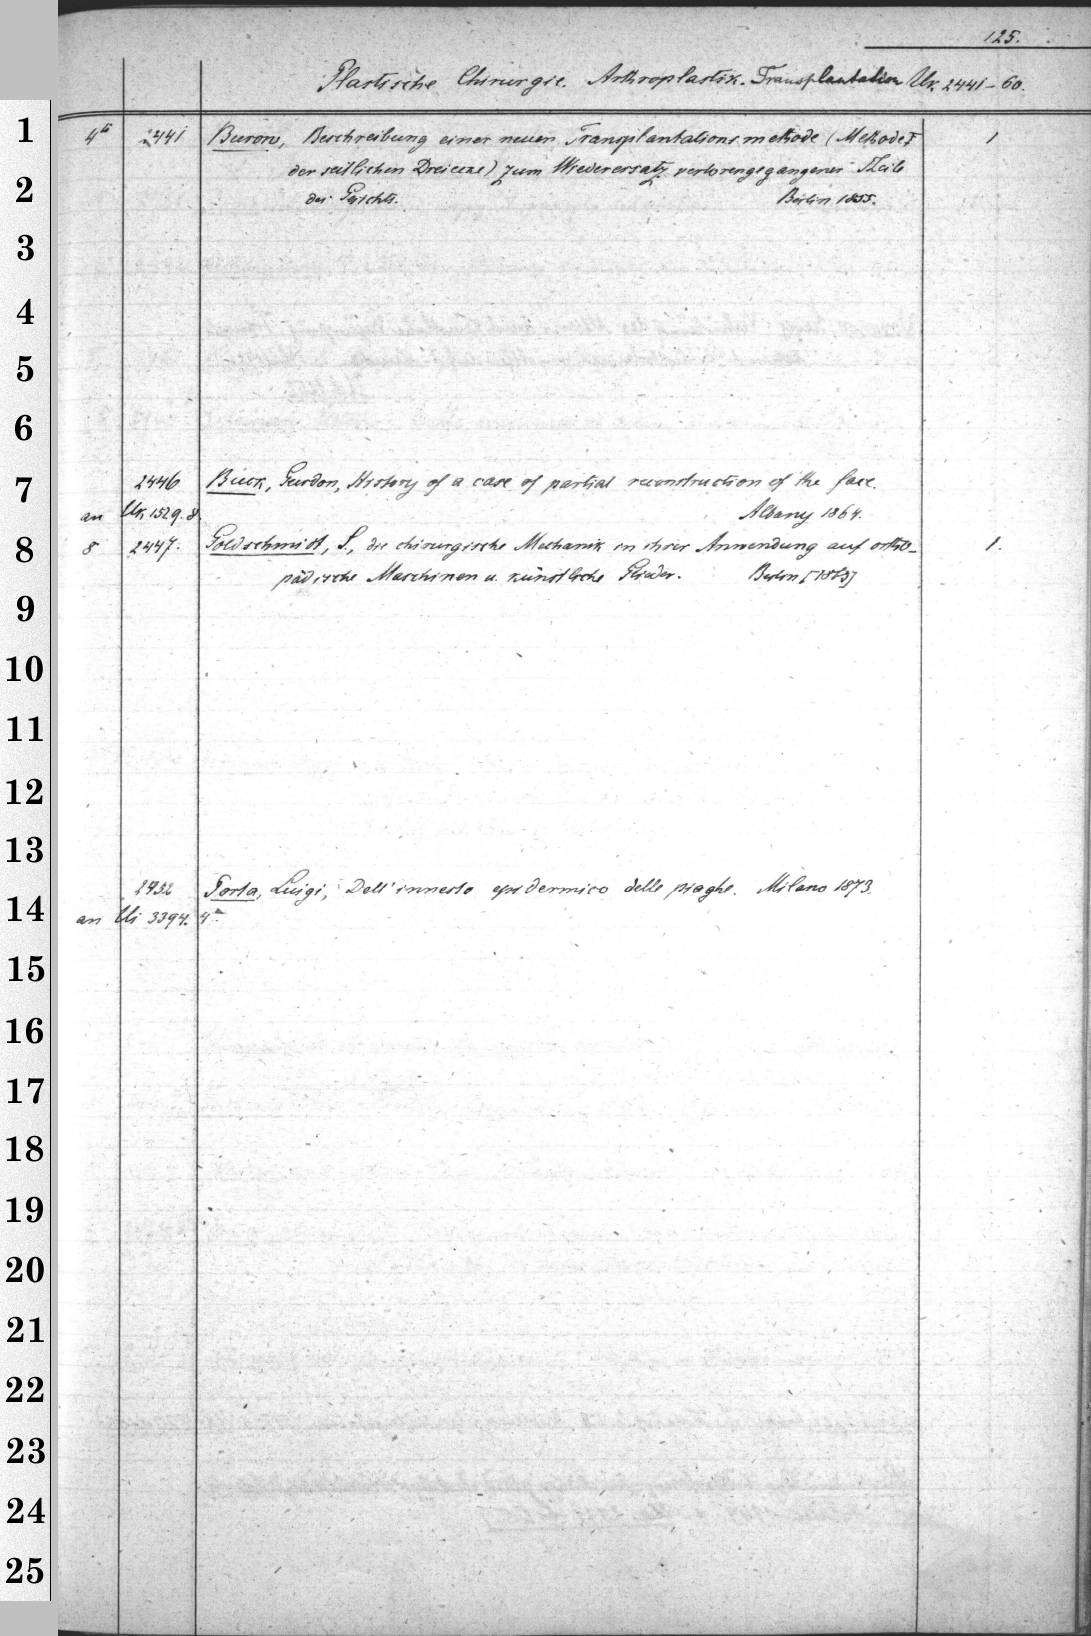 125.
Plastische Chirurgie. Arthroplastik. Transplantation Uk. 2441–60.
1
4to 2441 Burow, Beschreibung einer neuen Transplantationsmethode (Methode 1
2
der seitlichen Dreiecke) zum Wiederersatz verlorengegangener Theile
des Gesichts. Berlin 1855.
3
4
5
6
7
2446 Buck, Gurdon, History of a case of partial reconstruction of the face.
an Uk 1529. 8. Albany 1864.
8
8 2447. Goldschmidt, S., die chirurgische Mechanik in ihrer Anwendung auf ortho- 1.
pädische Maschinen u. künstliche Glieder. Berlin
9
10
11
12
13
14
2452 Porta, Luigi, Dell'innesto epidermico delle piaghe. Milano 1873.
an Ui 3394. 4to
15
16
17
18
19
20
21
22
23
24
25